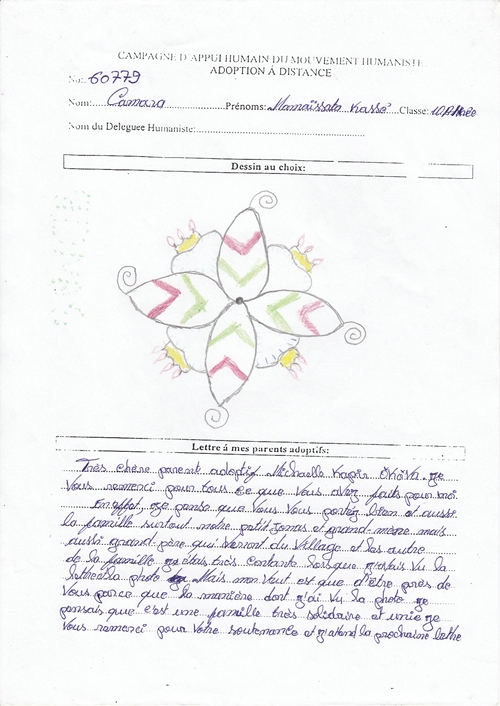 CAMPAGNE D'APPUI HUMAIN DU MOUVEMENT HUMANISTE
ADOPTION À DISTANCE
No: 60779
Nom: Camara Prénoms: Mamaïssata Kassé Classe:
Nom du Deleguee Humaniste:
Dessin au choix:
Lettre á mes parents adoptifs:
Très chère parent adoptif Michaelle
Vous remerci pour tous ce que Vous avez faits pour moi
En effet, je pense que Vous Vous portez bien et aussi
la famille surtout notre petit Jonas et grand-mère mais
aussi grand-père qui Vienent du Village et les autre
de la famille je étais très contante lorsque j'étais Vu la
photo Mais mon Veut est que d'être près de
Vous parce que la manière dont j'ai Vu la photo je
pensais que c'est une famille très solidaire et unie je
Vous remerci pour Votre soutenance et j'attend la prochaine lettre